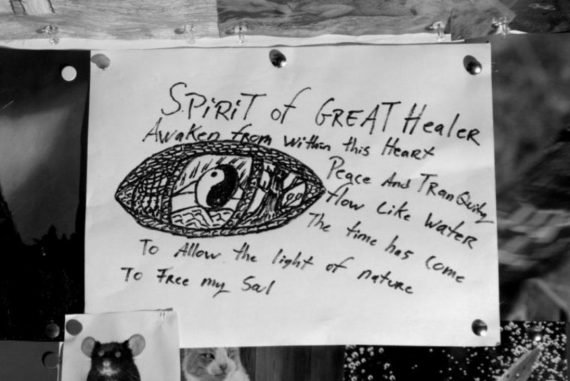 SPiRiT of GREAT Healer
Awaken from within this Heart
Peace And TranQuility
Flow Like Water
The time has come
To Allow the light of nature
To Free my Soul